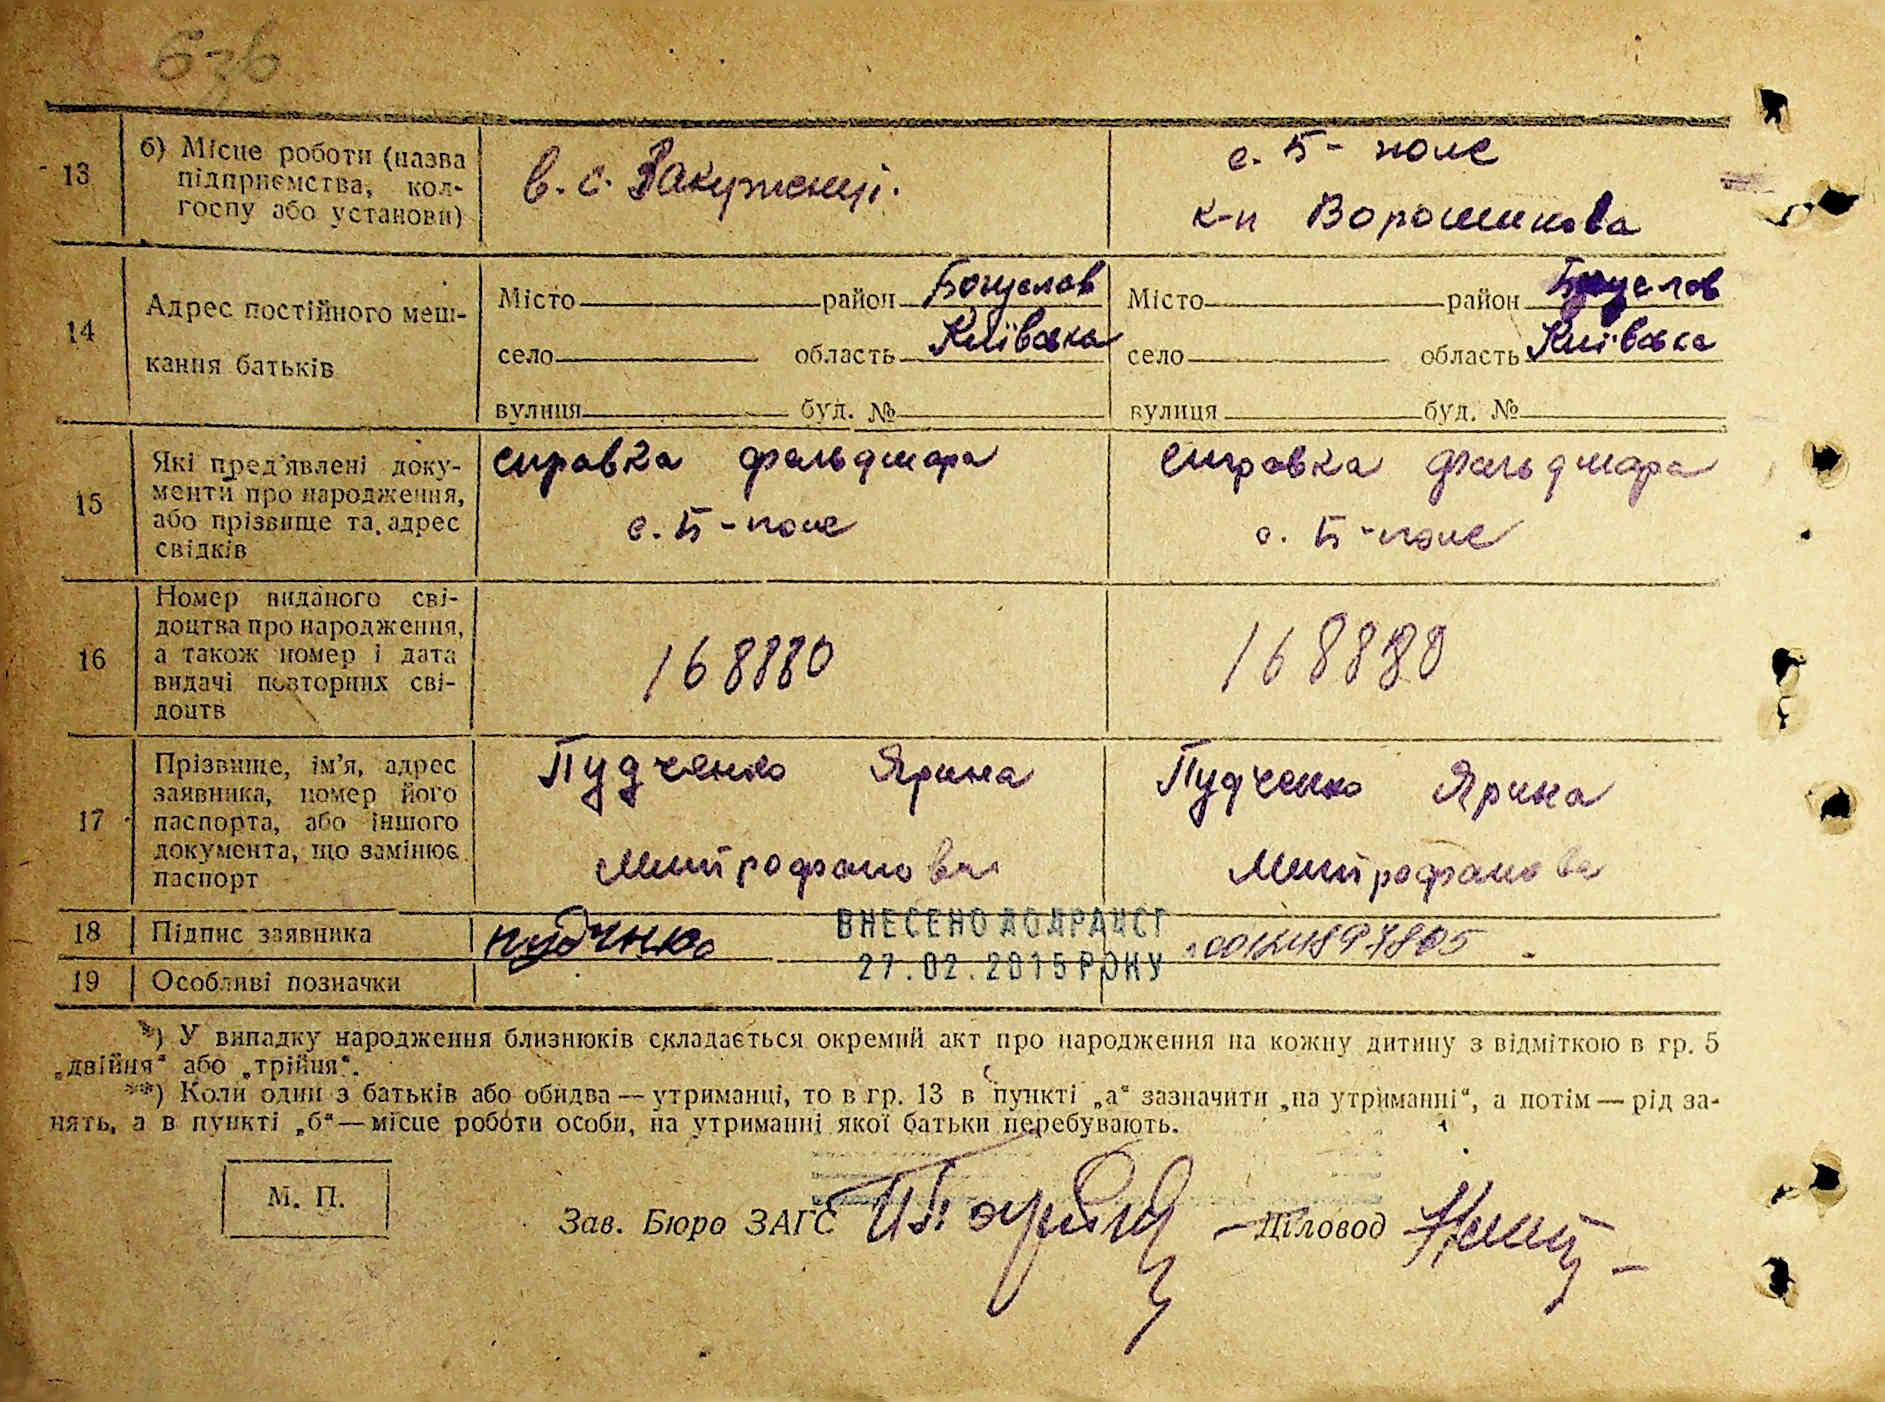 63б
13
б) Місце роботи (назва
підприємства, кол-
госпу або установи)
в. с. Закутенці.
с. Б-поле
к-п Ворошилова
14
Адрес постійного меш-
кання батьків
Місто район Богуслав
село область Київська
вулиця буд. №
Місто район Богуслав
село область Київська
вулиця буд. №
15
Які пред'явлені доку-
менти про народження,
або прізвище та адрес
свідків
справка фельдшера
с. Б-поле
справка фельдшера
с. Б-поле
16
Номер виданого сві-
доцтва про народження,
а також номер і дата
видачі повторних сві-
доцтв
168880
168880
17
Прізвище, ім'я, адрес
заявника, номер його
паспорта, або іншого
документа, що замінює
паспорт
Пудченко Ярина
Митрофановна
Пудченко Ярина
Митрофанова
18
Підпис заявника
пудченко
ВНЕСЕНО ДО ДРАЦСГ
27.02.2015 РОКУ
00124897805
19
Особливі позначки
*) У випадку народження близнюків складається окремий акт про народження на кожну дитину з відміткою в гр. 5
„двійня“ або „трійня“.
**) Коли один з батьків або обидва — утриманці, то в гр. 13 в пункті „а“ зазначити „на утриманні“, а потім — рід за-
нять, а в пункті „б“ — місце роботи особи, на утриманні якої батьки перебувають.
М. П.
Зав. Бюро ЗАГС
Діловод